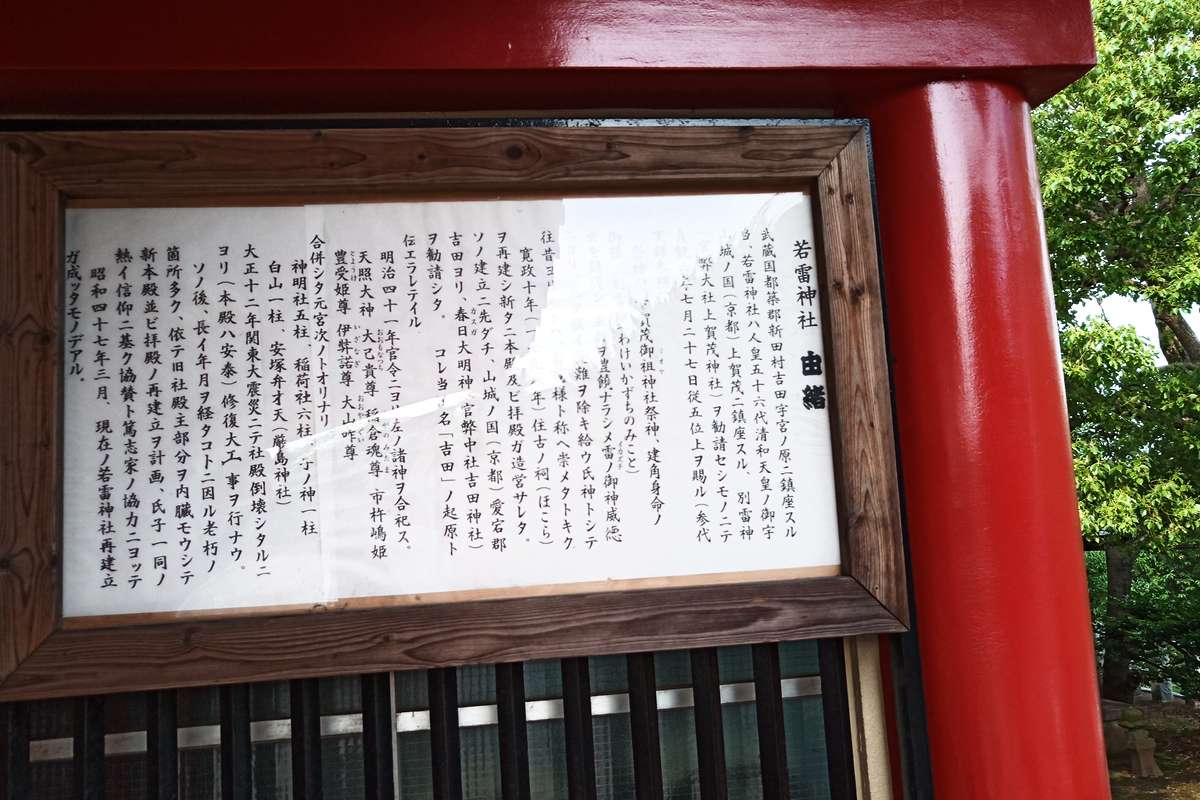 若雷神社 由緒
武蔵国都築郡新田村吉田字宮ノ原ニ鎮座スル
当、若雷神社ハ人皇五十六代清和天皇ノ御宇
山城ノ国(京都)上賀茂ニ鎮座スル、別雷神
弊大社上賀茂神社)ヲ勧請セシモノニテ
七月二十七日従五位上ヲ賜ル(参代
賀茂御祖神社祭神、建角身命ノ
わけいかずちのみこと)
ヲ豊饒ナラシメ雷ノ御神威徳
難ヲ除キ給ウ氏神トシテ
様ト称ヘ崇メタトキク
往昔ヨ
寛政十年(一 年)住古ノ祠(ほこら)
ヲ再建シ新タニ本殿及ビ拝殿ガ造営サレタ。
ソノ建立ニ先ダチ、山城ノ国(京都)愛宕郡
吉田ヨリ、春日大明神(官弊中社吉田神社)
カスガ
ヲ勧請シタ。 コレ当リ名「吉田」ノ起原ト
伝エラレテイル
明治四十一年官令ニヨリ左ノ諸神ヲ合祀ス。
天照大神 大己貴尊 稲倉魂尊 市杵嶋姫
おおもなつち
豊受姫尊 伊弊諾尊 大山咋尊
とようけ いざなぎ おおやまくい
合併シタ元宮次ノトオリナリ
神明社五柱、稲荷社六柱、子ノ神一柱
白山一柱、安塚弁才天(厳島神社)
大正十二年関東大震災ニテ社殿倒壊シタルニ
ヨリ(本殿ハ安泰)修復大工事ヲ行ナウ。
ソノ後、長イ年月ヲ経タコトニ因ル老朽ノ
箇所多ク、依テ旧社殿主部分ヲ内臓モウシテ
新本殿並ビ拝殿ノ再建立ヲ計画、氏子一同ノ
熱イ信仰ニ基ク協賛ト篤志家ノ協力ニヨッテ
昭和四十七年三月、現在ノ若雷神社再建立
ガ成ッタモノデアル。